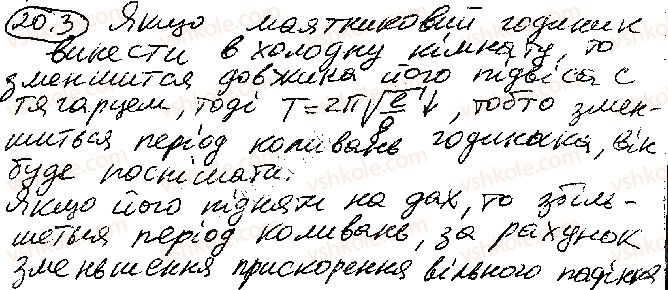 20.3 Якщо маятниковий годиник
винести в холодну кімнату, то
зменшится довжина його підвіса с
тягарцем, тоді T=2π√(ℓ/g)↓, тобто змен-
шиться період коливань годиныка, він
буде поспішати.
Якщо його підняти на дах, то збіль-
шеться період коливань, за рахунок
зменьшення прискорення вільного падіння